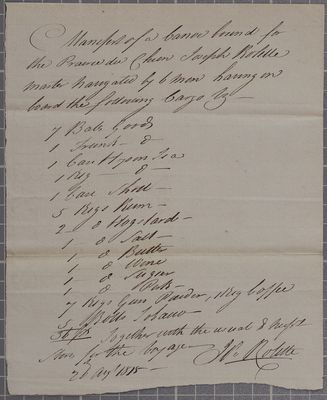 Manifest of a Canoe bound for
the Prairie du Chien Joseph Rolette
master navigated by 6 men having on
board the following Cargo Viz
7 Bale Goods
1 Trunk - do
1 Case Hyson Tea
1 Keg - do -
1 Case Shott -
5 Kegs Rum -
2 do Hogslard -
1 do Salt -
1 do Butter
1 do Wine
1 do Sugar
1 do Pork -
7 Kegs Gun Powder, 1 Keg Coffee
5 Rolls Tobacco -
36 ps Together with the usual
for the voyage -
Jh Rolette
2 Augt 1818 -